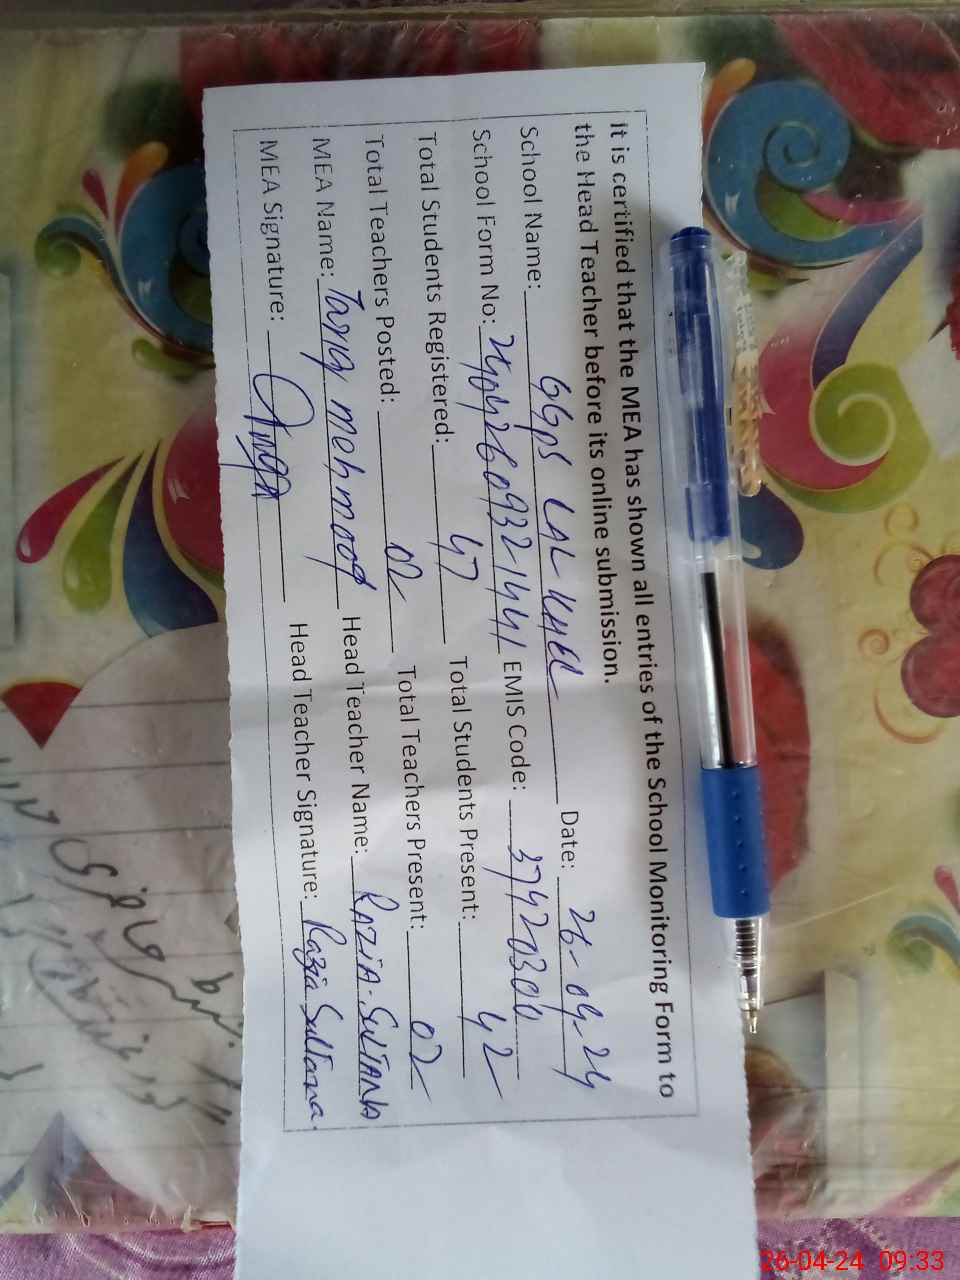 It is certified that the MEA has shown all entries of the School Monitoring Form to
the Head Teacher before its online submission.
School Name: GGPS LAL KHEL Date: 26-04-24
School Form No: 24042609321441 EMIS Code: 37420300
Total Students Registered: 47 Total Students Present: 42
Total Teachers Posted: 02 Total Teachers Present: 02
MEA Name: Tariq mehmood Head Teacher Name: RAZIA.SULTANA
MEA Signature: Head Teacher Signature: Razia Sultana.
26-04-24 09:33